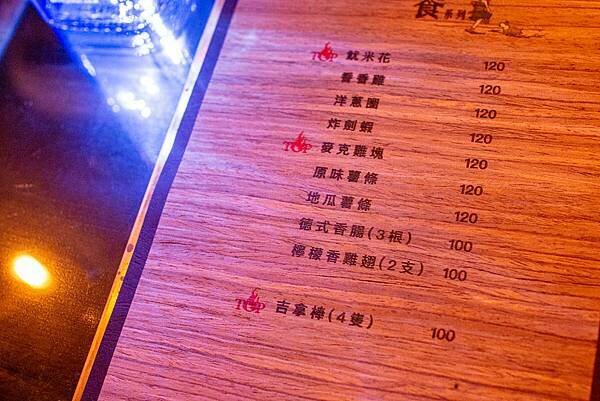 食系列
TOP 魷米花 120
香香雞 120
洋蔥圈 120
炸劍蝦 120
TOP 麥克雞塊 120
原味薯條 120
地瓜薯條 120
德式香腸(3根) 100
檸檬香雞翅(2支) 100
TOP 吉拿棒(4隻) 100